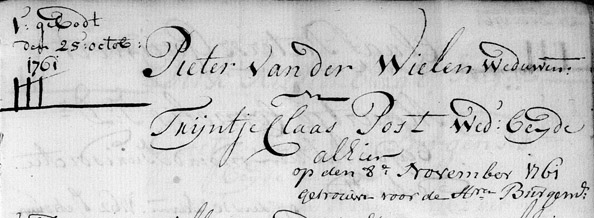 1e gebodt
den 25: octob:
1761
Pieter van der Wielen Weduwen:
en
Trijntje Claas Post Wed: beyde
alhier
op den 8e November 1761
getrouwt voor de Hren Burgem: